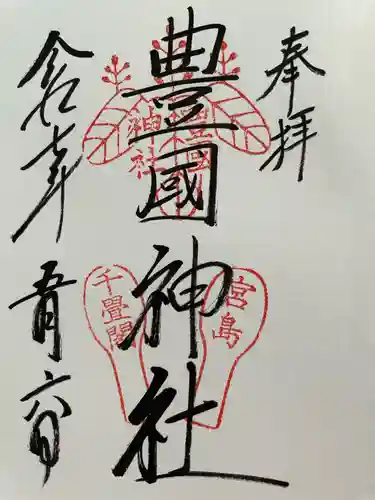 奉拝
豊國神社
豊國神社
宮島
千畳閣
令和
五月六日